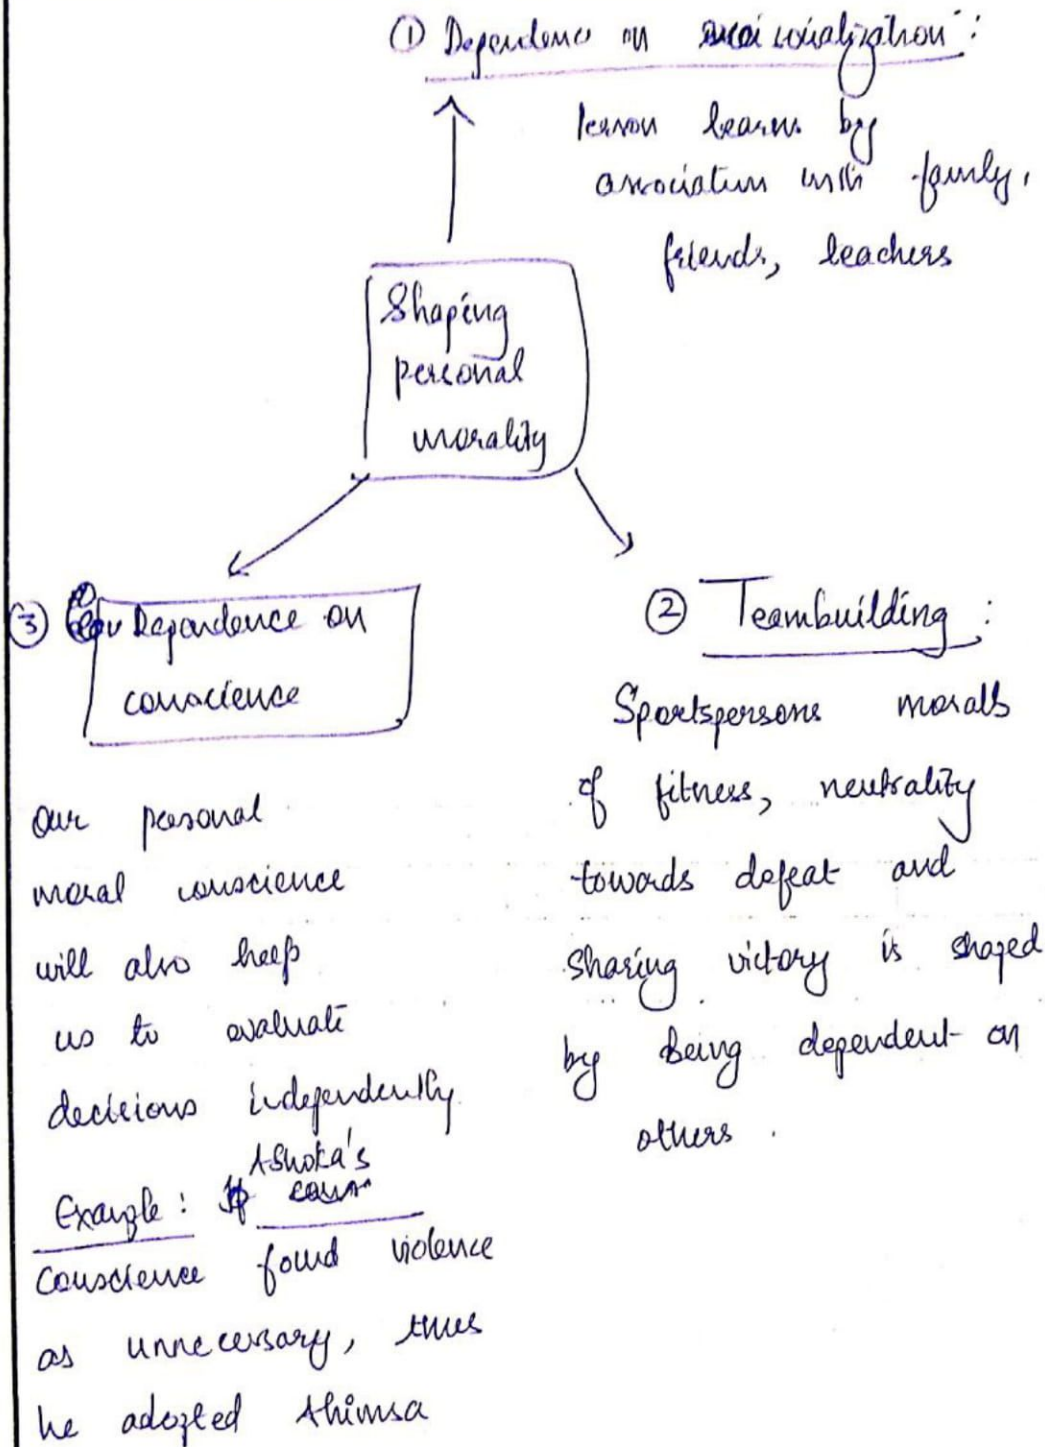 ① Dependence on socialization:
lesson learn by
association with family,
friends, teachers
Shaping
personal
morality
③ Dependence on
conscience
our personal
moral conscience
will also help
us to evaluate
decisions independently
Example: Ashoka's
conscience found violence
as unnecessary, thus
he adopted Ahimsa
② Teambuilding:
Sportspersons morals
of fitness, neutrality
towards defeat and
sharing victory is shaped
by being dependent on
others.